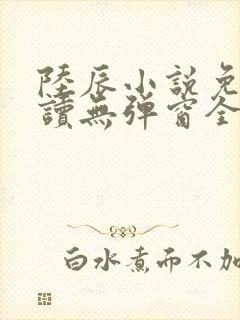 陸辰小說免
讀無彈窗全
白水煮而不加